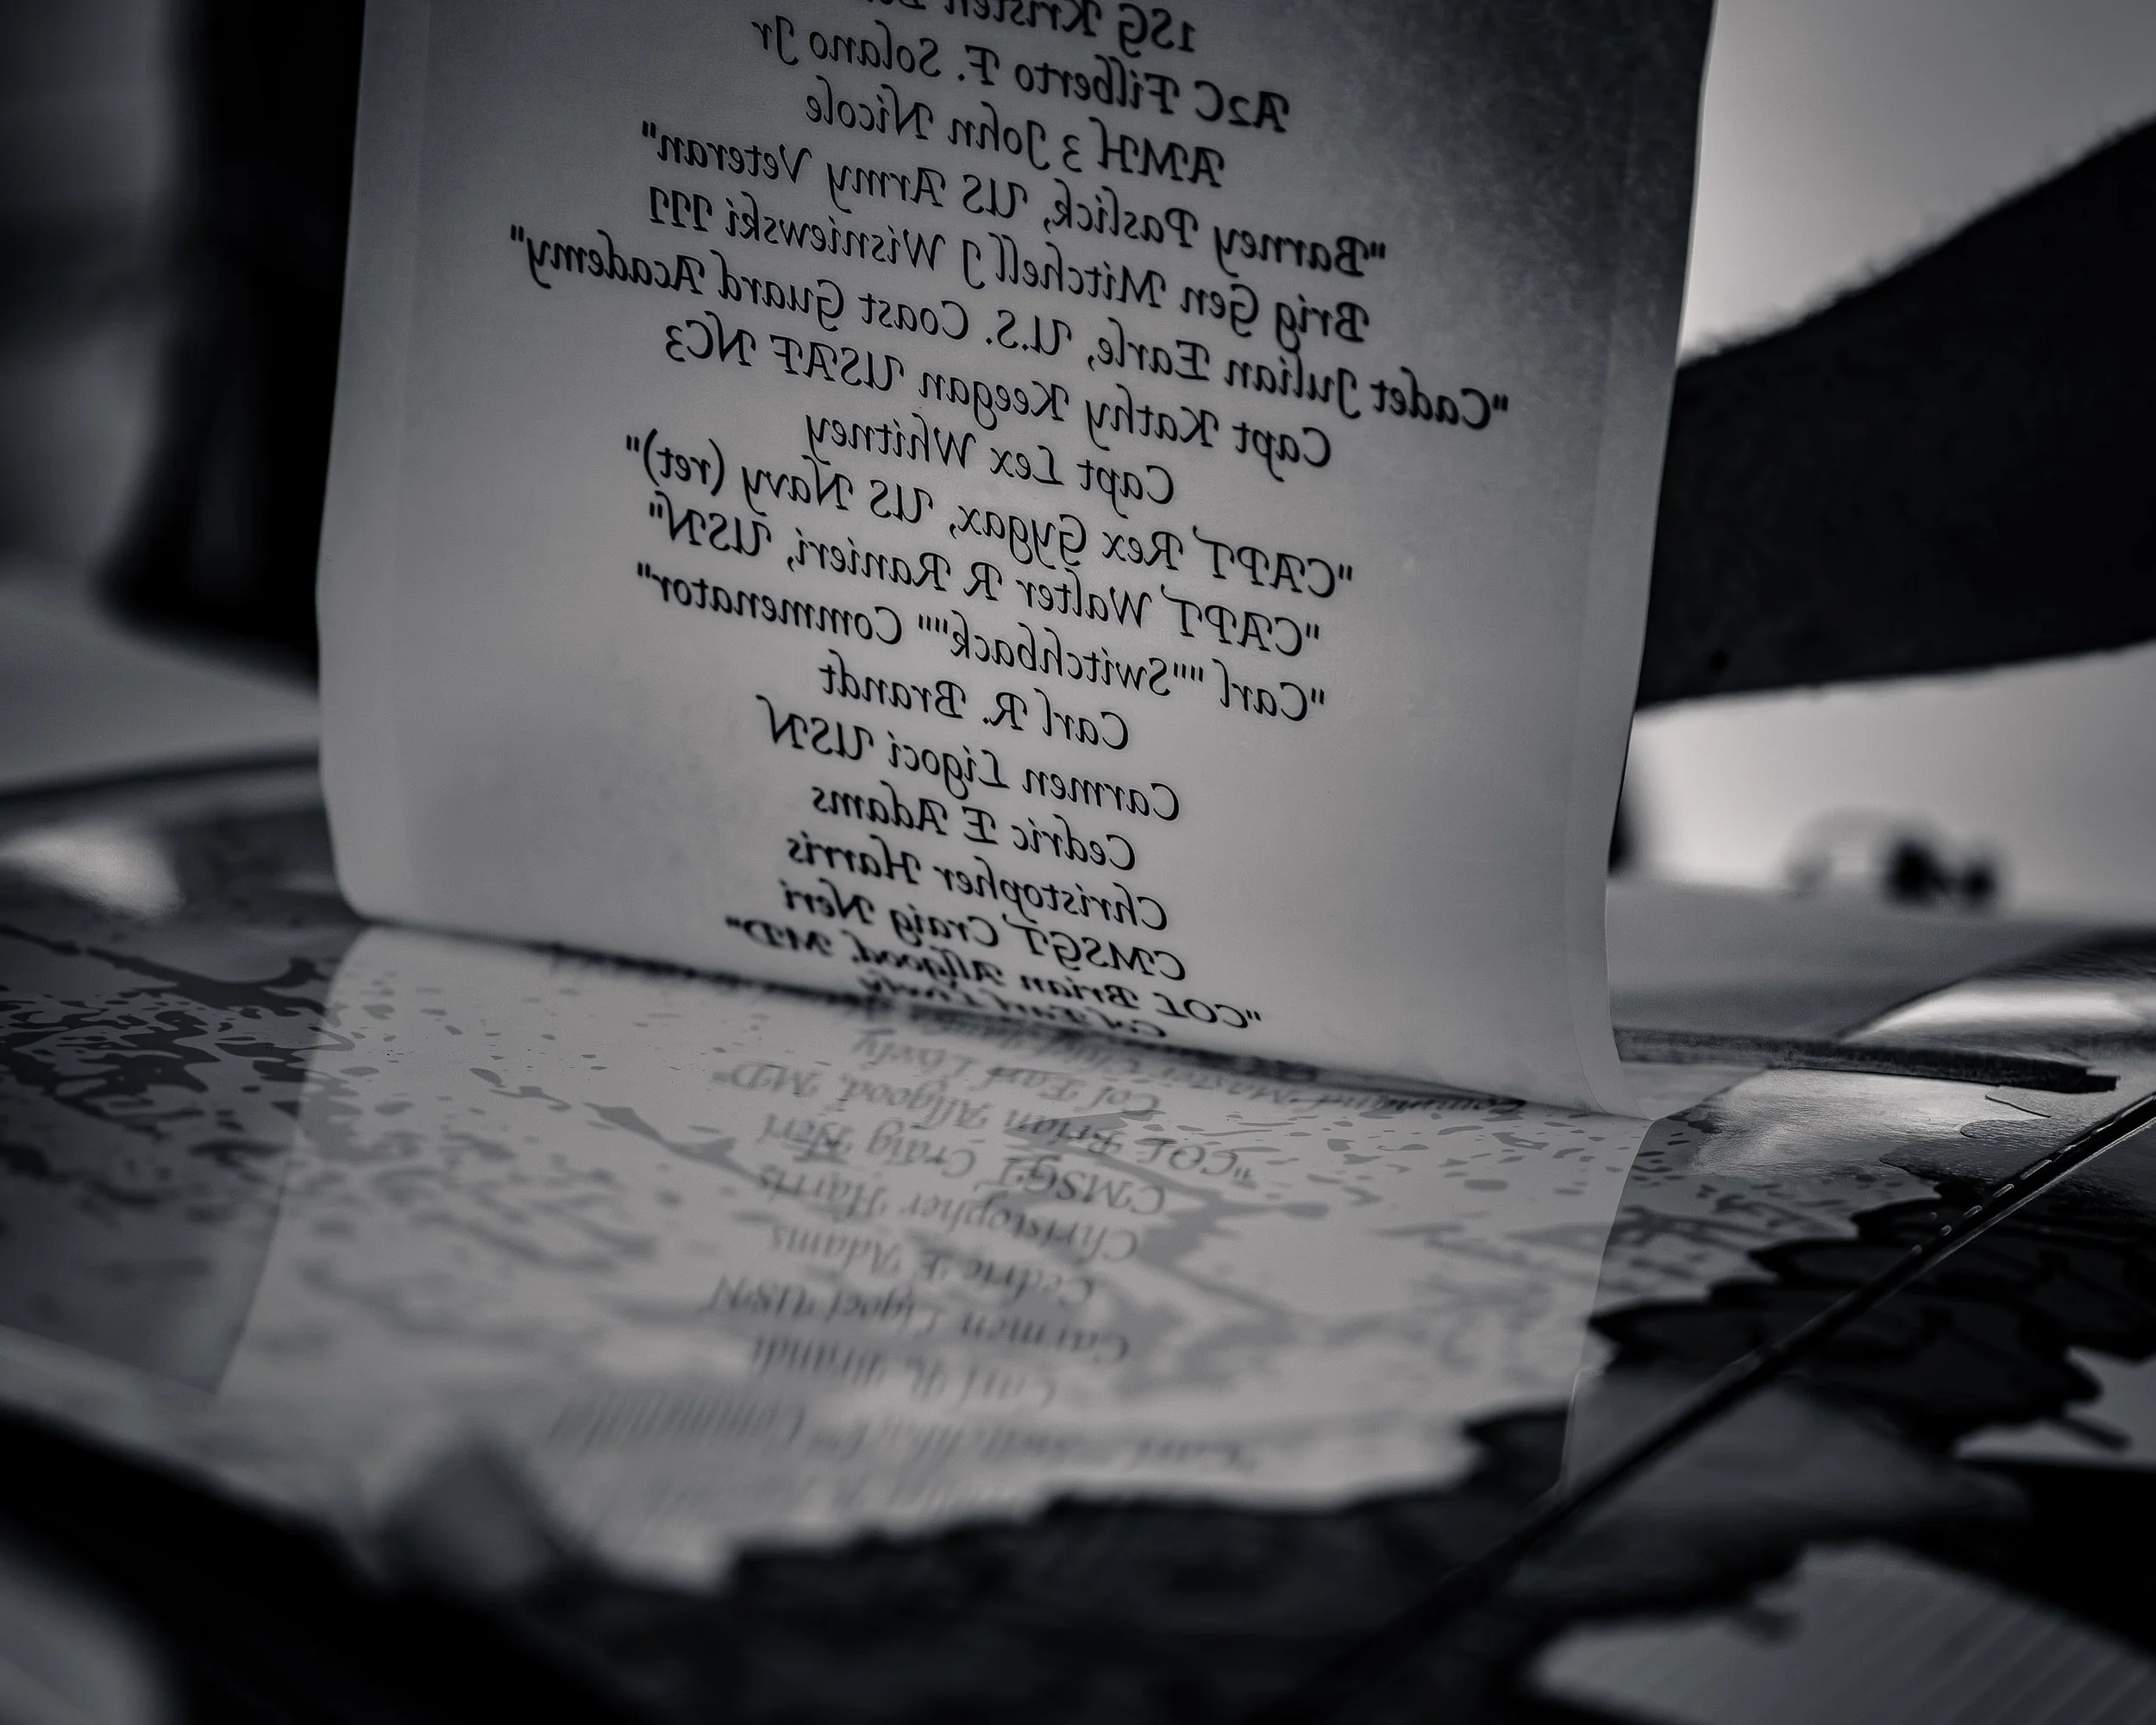 1SG Kristen
A2C Filberto F. Solano Jr
AMH 3 John Nicole
"Barney Paslick, US Army Veteran"
Brig Gen Mitchell J Wisniewski III
"Cadet Julian Earle, U.S. Coast Guard Academy"
Capt Kathy Keegan USAF NC3
Capt Lex Whitney
"CAPT Rex Gygax, US Navy (ret)"
"CAPT Walter R Ranieri, USN"
"Carl ""Switchback"" Commenator"
Carl R. Brandt
Carmen Ligoci USN
Cedric E Adams
Christopher Harris
CMSGT Craig Neri
"COL Brian Allgood, MD"
Col Earl Lively